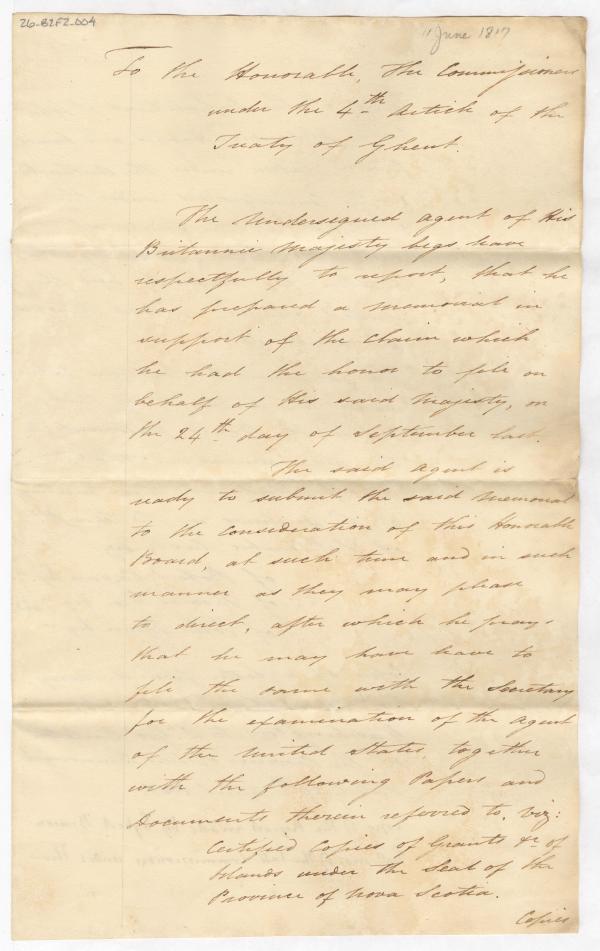 26-B2F2-004
11 June 1817
To the Honorable, the Commissioners
under the 4th Article of the
Treaty of Ghent.
The Undersigned Agent of His
Britannic Majesty begs leave
respectfully to report, that he
has prepared a Memorial in
support of the Claim which
he had the honor to file on
behalf of His said Majesty, on
the 24th day of September last.
The said Agent is
ready to submit the said Memorial
to the Consideration of this Honorable
Board, at such time and in such
manner as they may please
to direct, after which he prays
that he may have leave to
file the same with the Secretary
for the examination of the Agent
of the United States, together
with the following Papers and
Documents therein referred to, viz:
Certified Copies of Grants &c of
Islands under the Seal of the
Province of Nova Scotia.
Copies